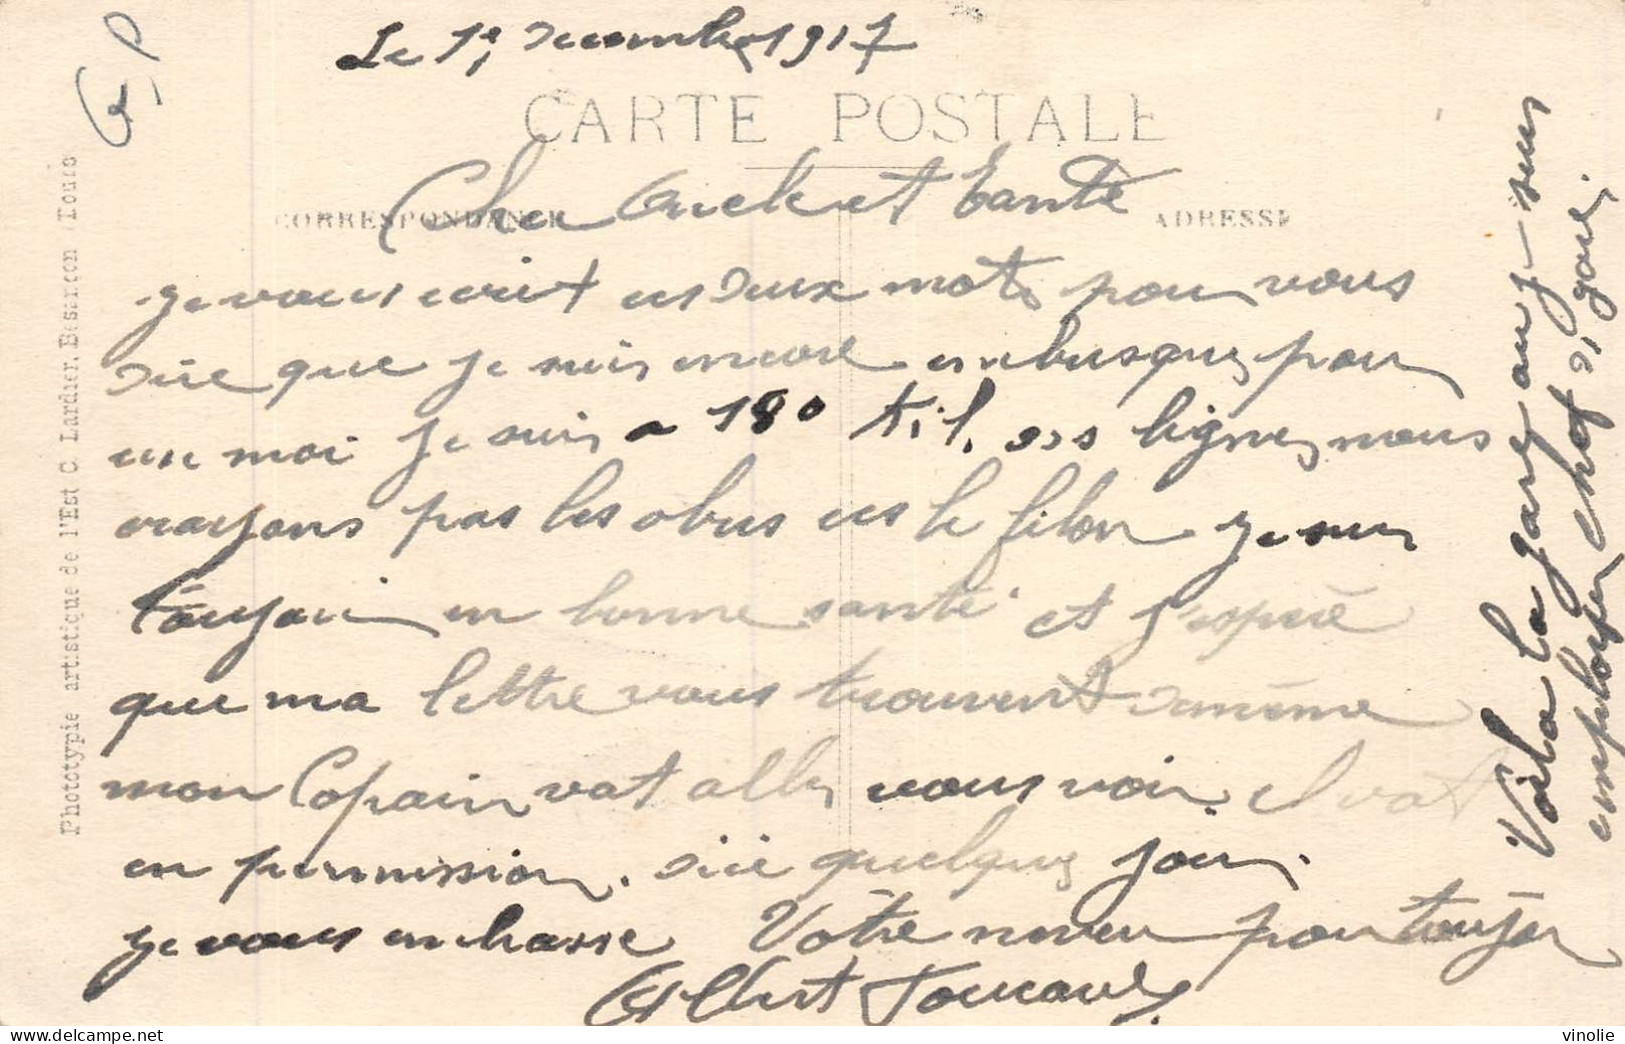 G P
Le 1er decembre 1917
CARTE POSTALE
CORRESPONDANCE
ADRESSE
Cher Oncle et tante
je vous ecrit ces deux mots pour vous
dire que je suis encore enbusques pour
un moi je suis a 180 Kil. des lignes nous
crayons pas les obus ces le filon je suis
toujour en bonne santé et j'espère
que ma lettre vous trouvent de même
mon Copain vat aller vous voir il vat
en permission dici quelques jour.
je vous enbrasse Votre neveu pour toujour
Albert
Voila la gare ou je suis
employer chef di gare.
Phototypie artistique de l'Est C. Lardier, Besançon (Doubs
vinolie